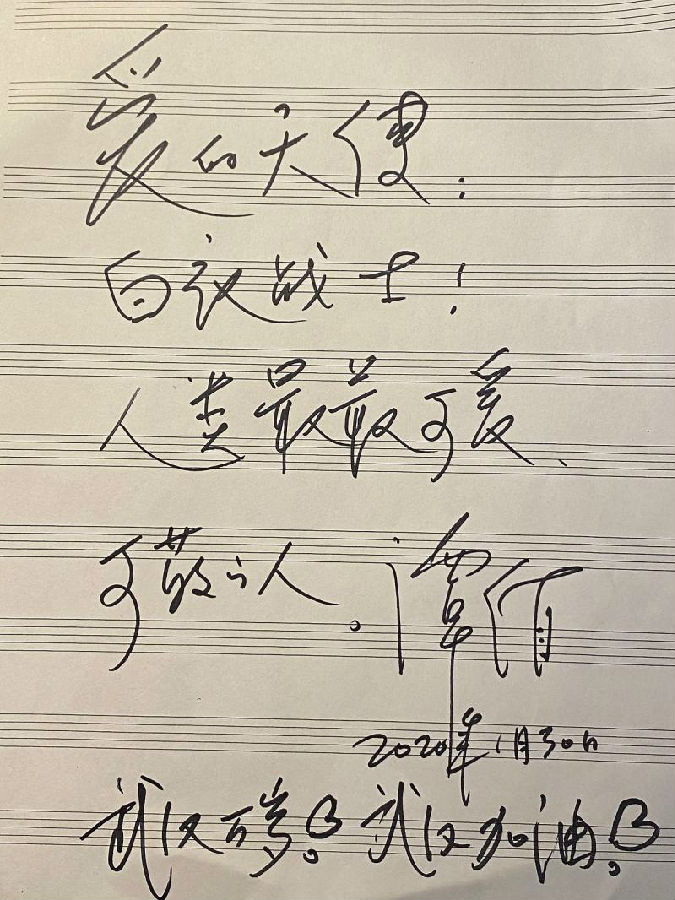 爱的天使:
白衣战士!
人类最最可爱、
可敬的人。
2020年1月30日
武汉万岁! 武汉加油!